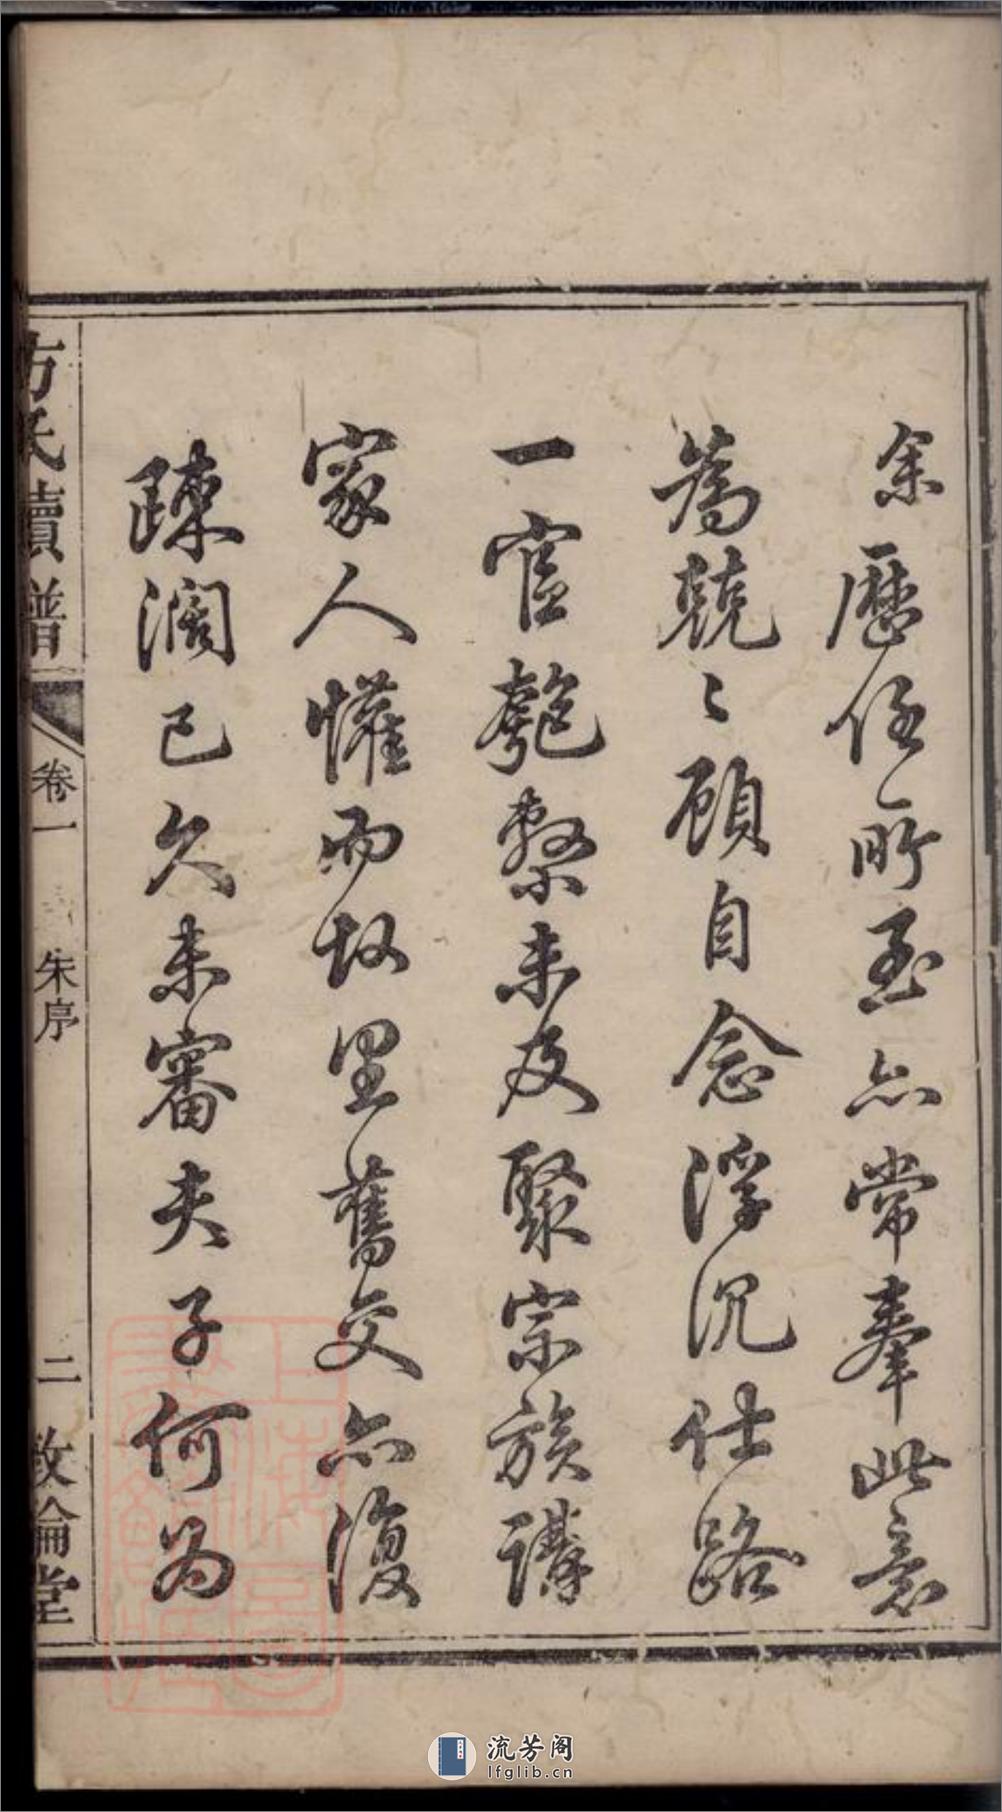 余歷任所至亦常奉此意
為兢〻顧自念浮沉仕路
一官匏繫未及聚宗族講
家人懽而故里舊交亦復
疎濶已久未審夫子何為
方氏續譜
卷一
朱序
二
敦倫堂
流芳阁
lfglib.cn